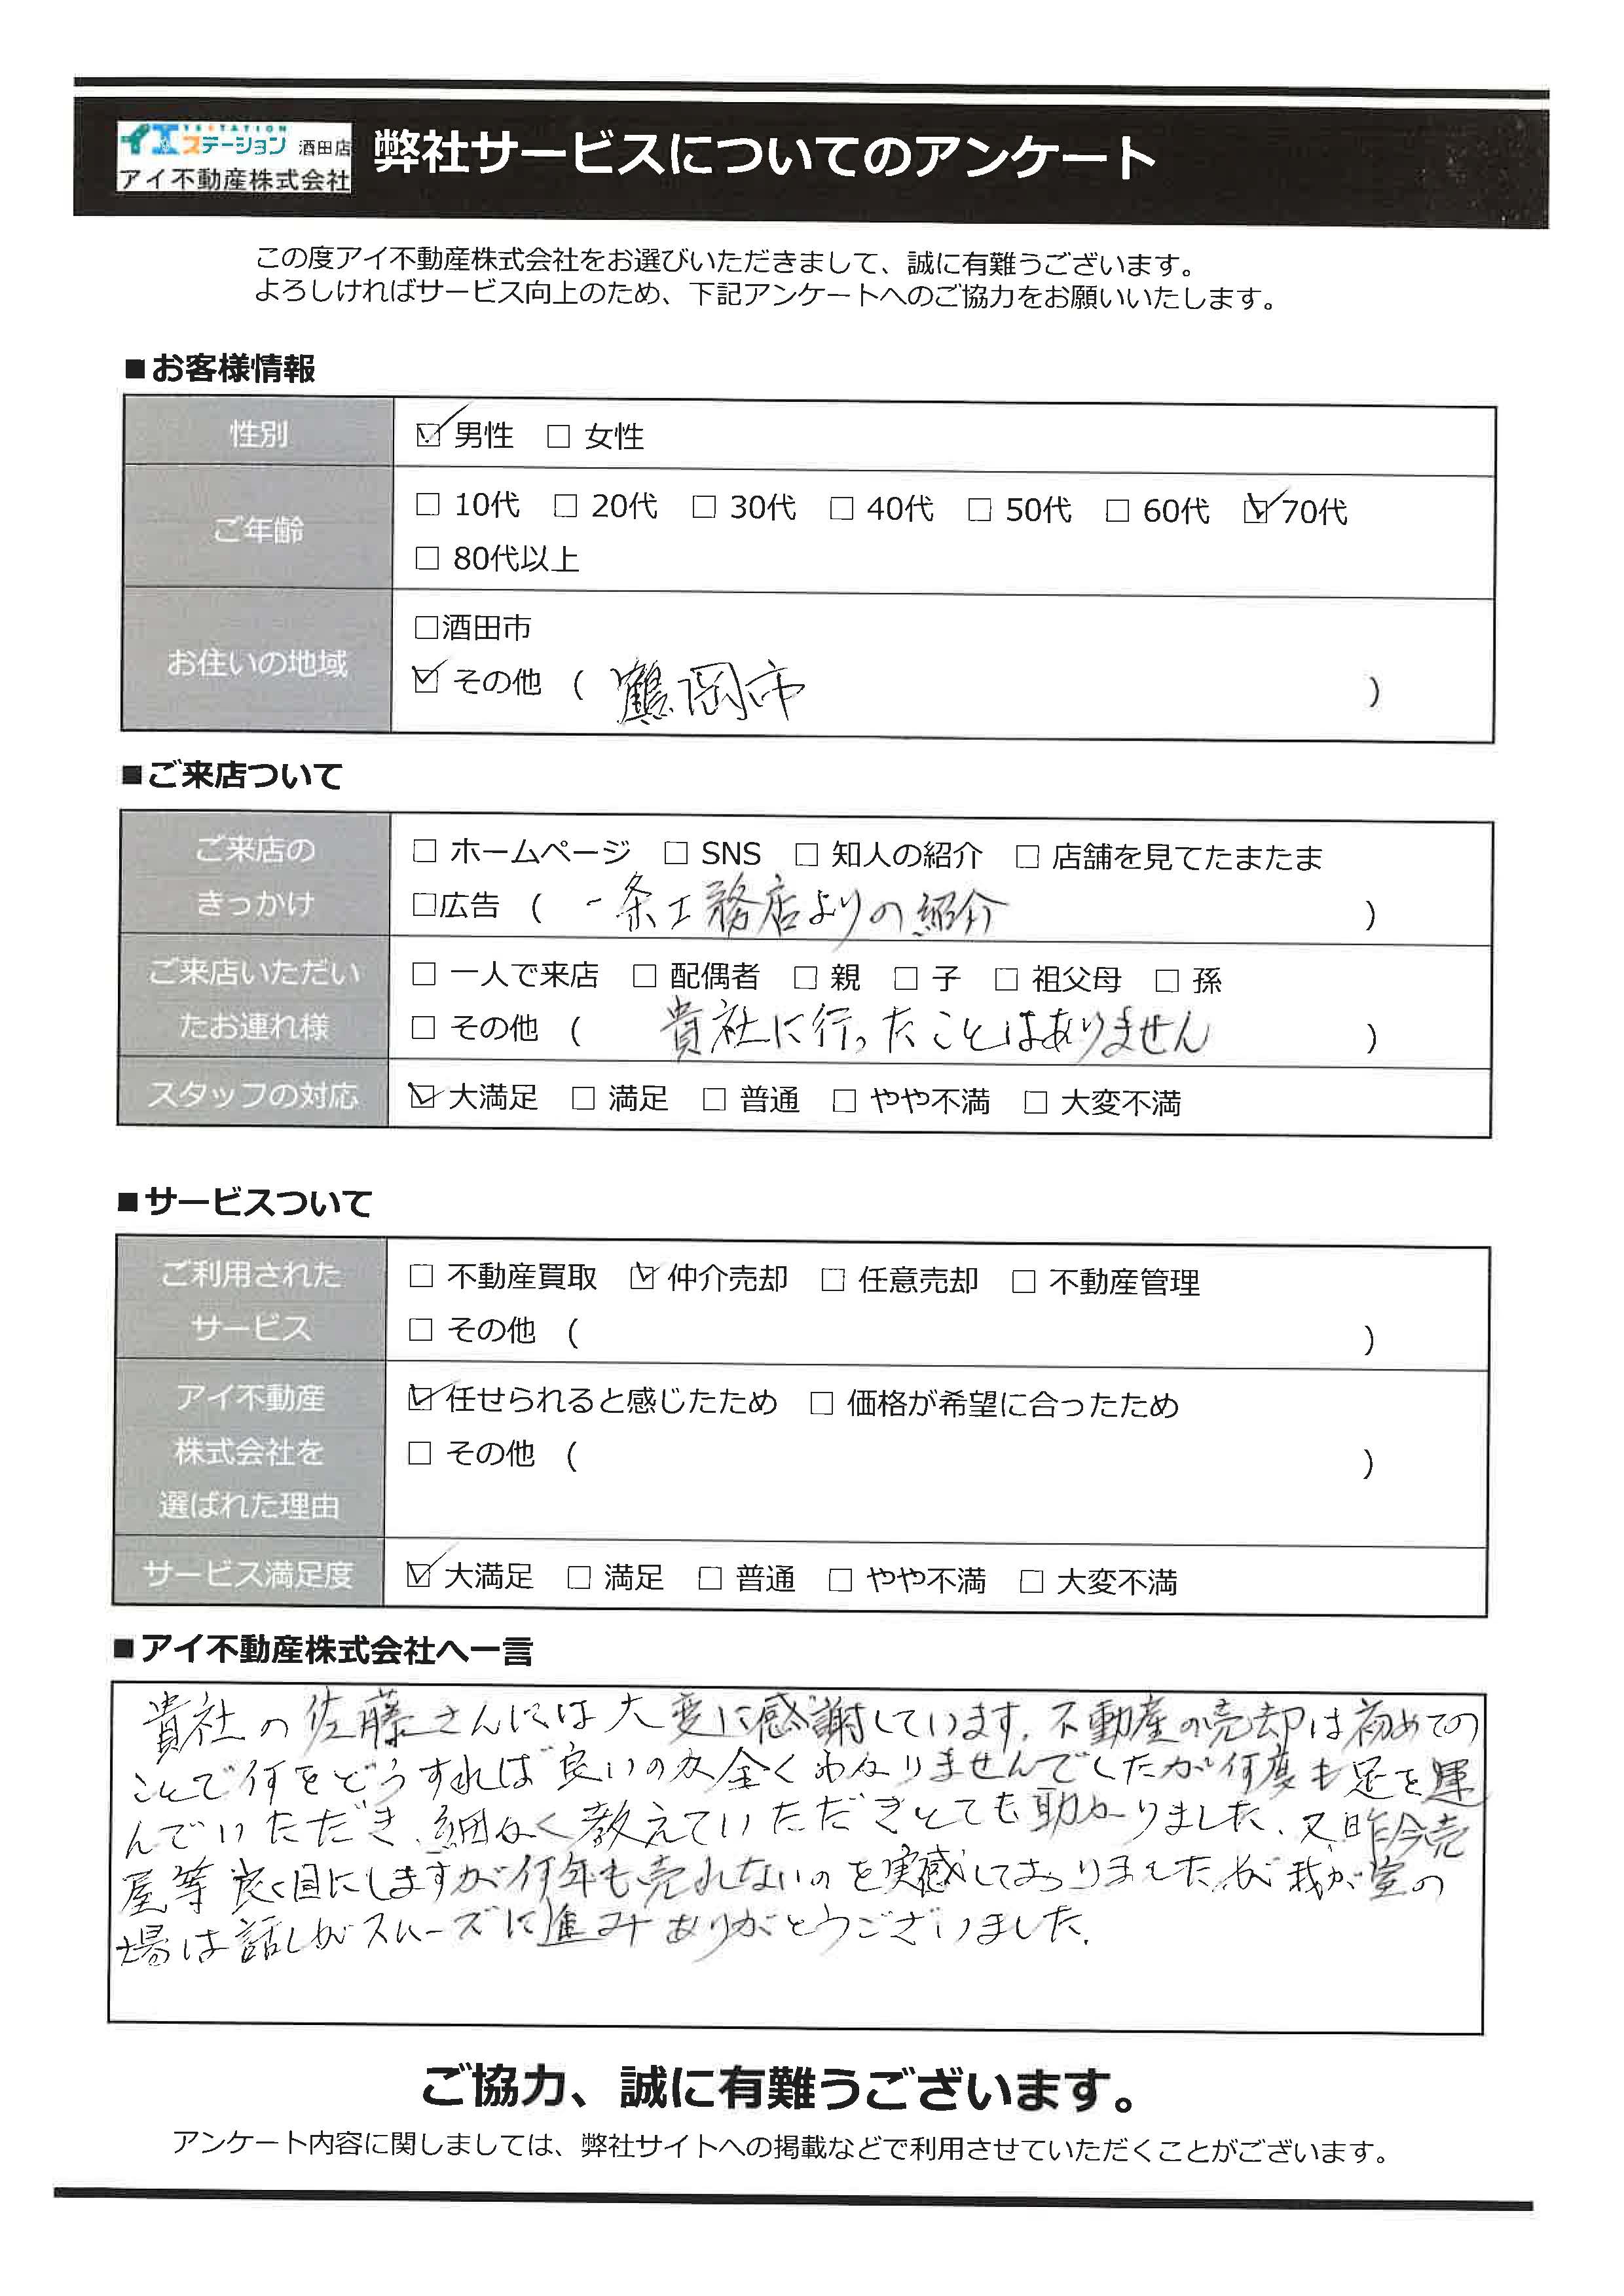 イエステーション 酒田店
YESTATION
アイ不動産株式会社
弊社サービスについてのアンケート
この度アイ不動産株式会社をお選びいただきまして、誠に有難うございます。
よろしければサービス向上のため、下記アンケートへのご協力をお願いいたします。
■お客様情報
性別 ☑ 男性 □ 女性
ご年齢 □ 10代 □ 20代 □ 30代 □ 40代 □ 50代 □ 60代 ☑ 70代
□ 80代以上
お住いの地域 □酒田市
☑ その他 ( 鶴岡市 )
■ご来店ついて
ご来店の □ ホームページ □ SNS □ 知人の紹介 □ 店舗を見てたまたま
きっかけ □広告 ( 一条工務店よりの紹介 )
ご来店いただい □ 一人で来店 □ 配偶者 □ 親 □ 子 □ 祖父母 □ 孫
たお連れ様 □ その他 ( 貴社に行ったことはありません )
スタッフの対応 ☑ 大満足 □ 満足 □ 普通 □ やや不満 □ 大変不満
■サービスついて
ご利用された □ 不動産買取 ☑ 仲介売却 □ 任意売却 □ 不動産管理
サービス □ その他 ( )
アイ不動産 ☑ 任せられると感じたため □ 価格が希望に合ったため
株式会社を □ その他 ( )
選ばれた理由
サービス満足度 ☑ 大満足 □ 満足 □ 普通 □ やや不満 □ 大変不満
■アイ不動産株式会社へ一言
貴社の佐藤さんには大変に感謝しています。不動産の売却は初めての
ことで何をどうすれば良いのか全くわかりませんでしたが何度も足を運
んでいただき、細かく教えていただきとても助かりました。又昨今売
屋等良く目にしますが何年も売れないのを実感しておりましたが我が室の
場は話しがスムーズに進みありがとうございました。
ご協力、誠に有難うございます。
アンケート内容に関しましては、弊社サイトへの掲載などで利用させていただくことがございます。